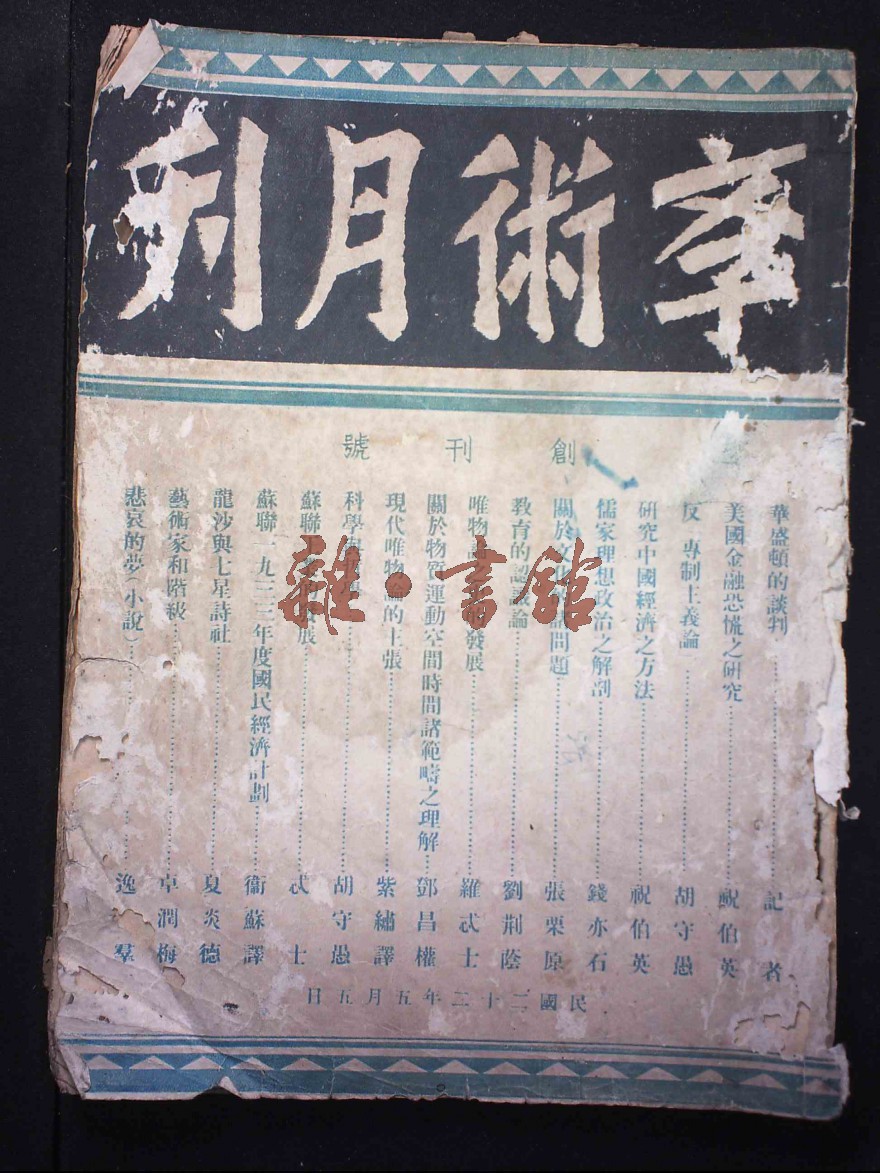 學術月刊
創刊號
華盛頓的談判……記者
美國金融恐慌之研究……祝伯英
反「專制主義論」……胡守愚
研究中國經濟之方法……祝伯英
儒家理想政治之解剖……錢亦石
關於文化問題……張栗原
教育的認識論……劉荆蔭
唯物論發展……羅忒士
關於物質運動空間時間諸範疇之理解……鄧昌權
現代唯物論的主張……紫繡譯
科學……胡守愚
蘇聯發展……忒士
蘇聯一九三三年度國民經濟計劃……衞蘇譯
龍沙與七星詩社……夏炎德
藝術家和階級……卓潤梅
悲哀的夢（小說）……逸羣
民國二十二年五月五日
雜·書館